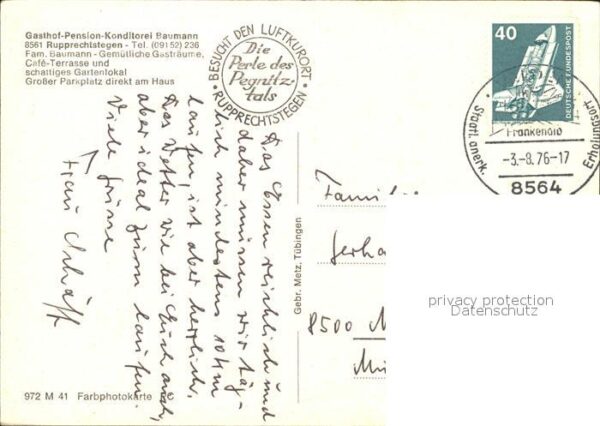 Gasthof-Pension-Konditorei Baumann
8561 Rupprechtstegen - Tel. (09152) 236
Fam. Baumann - Gemütliche Gasträume,
Café-Terrasse und
schattiges Gartenlokal
Großer Parkplatz direkt am Haus
BESUCHT DEN LUFTKURORT
Die
Perle des
Pegnitz-
tals
RUPPRECHTSTEGEN
40
DEUTSCHE BUNDESPOST
Staatl. anerk. Erholungsort
-3.-8.76-17
8564
Das Essen reichlich und
daher müssen wir täg-
lich mindestens 10 km
laufen, ist aber herrlich.
Das Wetter wie bei Euch auch,
aber ideal zum laufen.
Viele Grüsse
Frau Schäff
Gebr. Metz, Tübingen
Famil
Gerha
8500 M
privacy protection
Datenschutz
972 M 41 Farbphotokarte